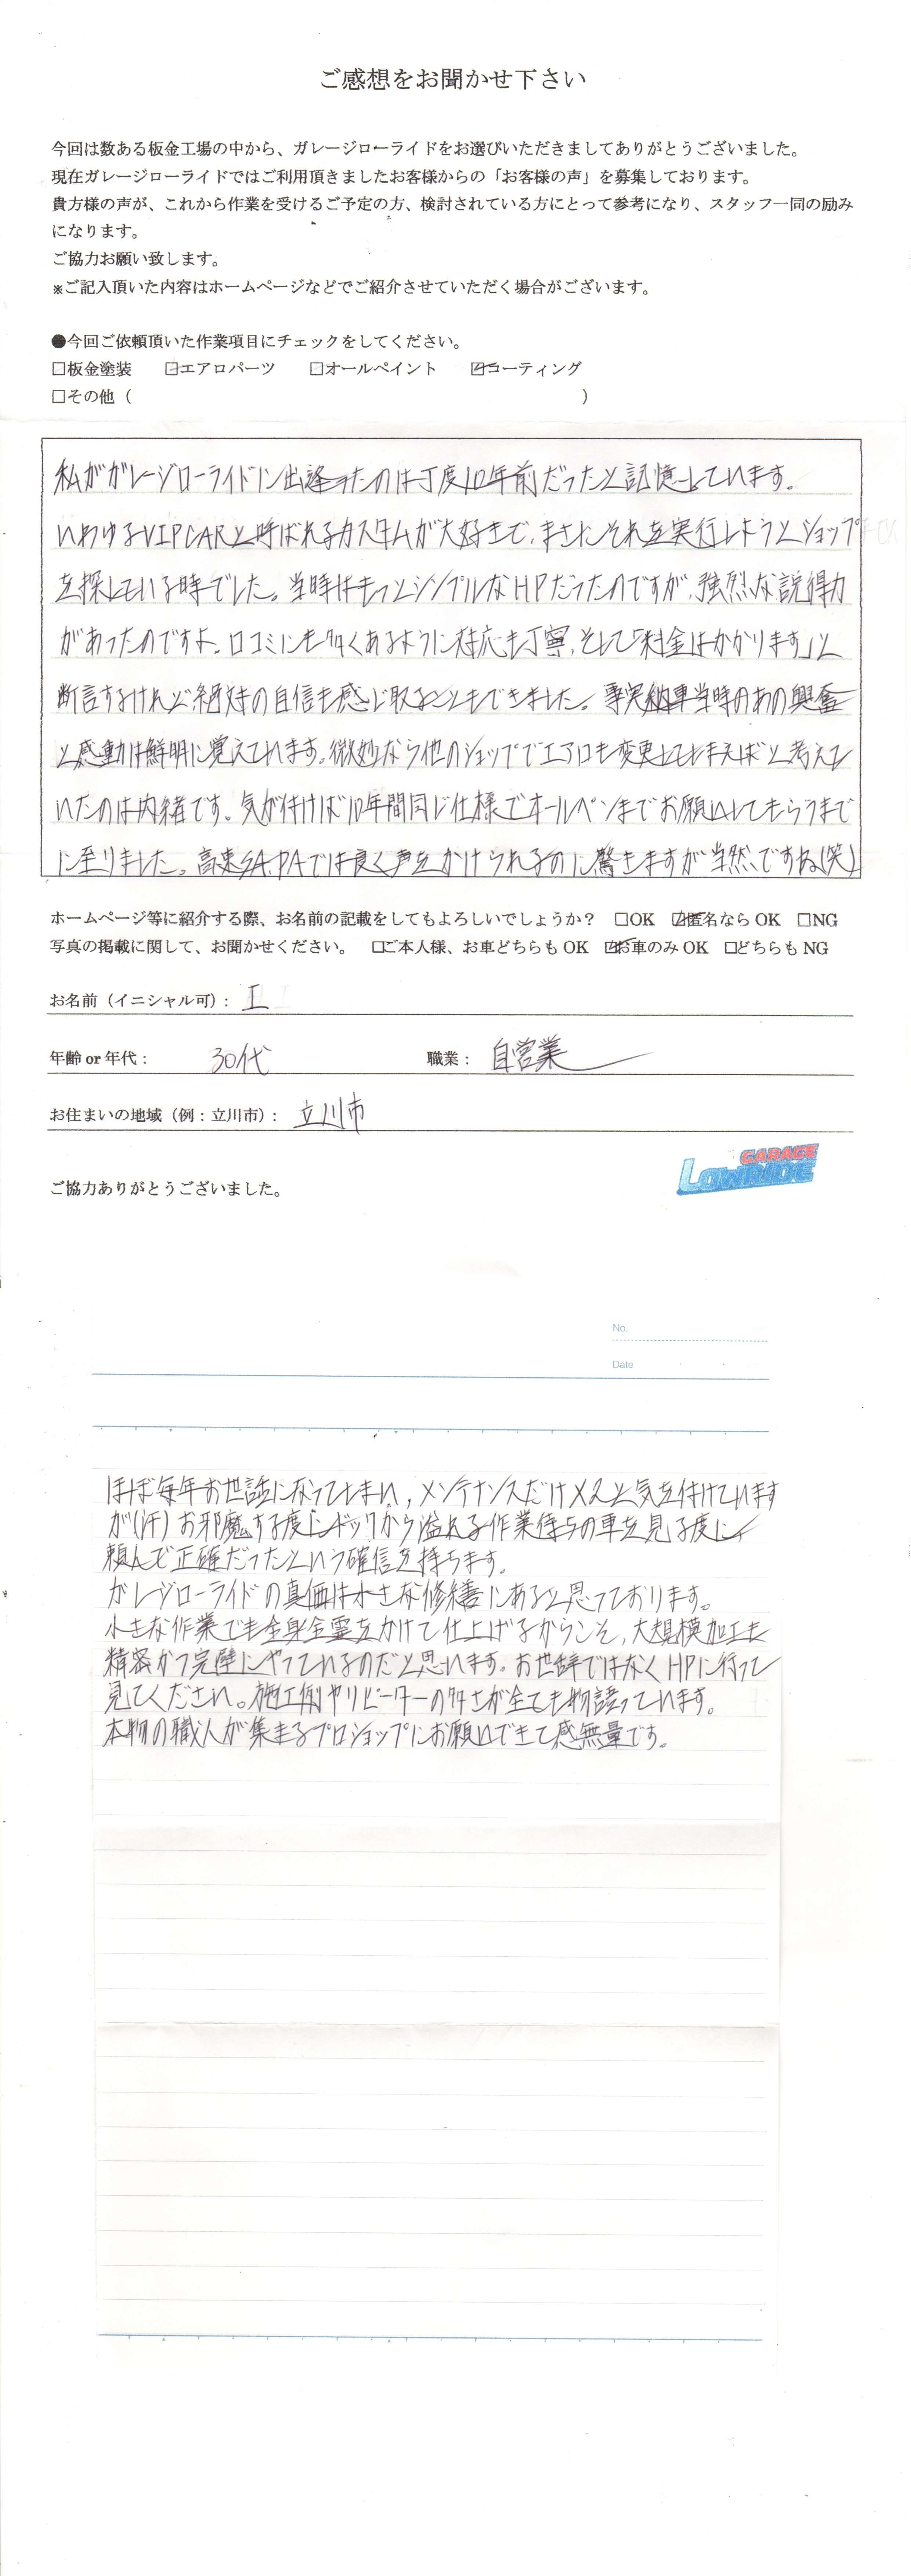 ご感想をお聞かせ下さい
今回は数ある板金工場の中から、ガレージローライドをお選びいただきましてありがとうございました。
現在ガレージローライドではご利用頂きましたお客様からの「お客様の声」を募集しております。
貴方様の声が、これから作業を受けるご予定の方、検討されている方にとって参考になり、スタッフ一同の励み
になります。
ご協力お願い致します。
※ご記入頂いた内容はホームページなどでご紹介させていただく場合がございます。
●今回ご依頼頂いた作業項目にチェックをしてください。
□板金塗装 ☑エアロパーツ □オールペイント ☑コーティング
□その他（ ）
私がガレージローライドに出逢ったのは丁度10年前だったと記憶しています。
いわゆるVIPCARと呼ばれるカスタムが大好きで、まさにそれを実行しようとショップ
を探している時でした。当時はもっとシンプルなHPだったのですが、強烈な説得力
があったのですよ。口コミにも多くあるように対応も丁寧、そして「料金はかかります」と
断言するけれど絶対の自信も感じ取ることもできました。事実納車当時のあの興奮
と感動は鮮明に覚えています。微妙なら他のショップでエアロも変更してしまえばと考えて
いたのは内緒です。気が付けば10年間同じ仕様でオールペンまでお願いしてもらうまで
に至りました。高速SA.PAでは良く声をかけられるのに驚きますが当然、ですね(笑)
ホームページ等に紹介する際、お名前の記載をしてもよろしいでしょうか？ □OK ☑匿名なら OK □NG
写真の掲載に関して、お聞かせください。 □ご本人様、お車どちらも OK ☑お車のみ OK □どちらも NG
お名前（イニシャル可）： I
年齢 or 年代： 30代 職業： 自営業
お住まいの地域（例：立川市）： 立川市
ご協力ありがとうございました。
GARAGE
LOWRIDE
No.
Date
ほぼ毎年お世話になってしまい、メンテナンスだけﾒｽと気を付けています
が(汗) お邪魔する度にドックから溢れる作業待ちの車を見る度に
頼んで正確だったという確信を持ちます。
ガレージローライドの真価は小さな修繕にあると思っております。
小さな作業でも全身全霊をかけて仕上げるからこそ、大規模加工も
精密かつ完璧にやっているのだと思います。お世辞ではなくHPに行って
見てください。施工例やリピーターの多さが全てを物語っています。
本物の職人が集まるプロショップにお願いできて感無量です。